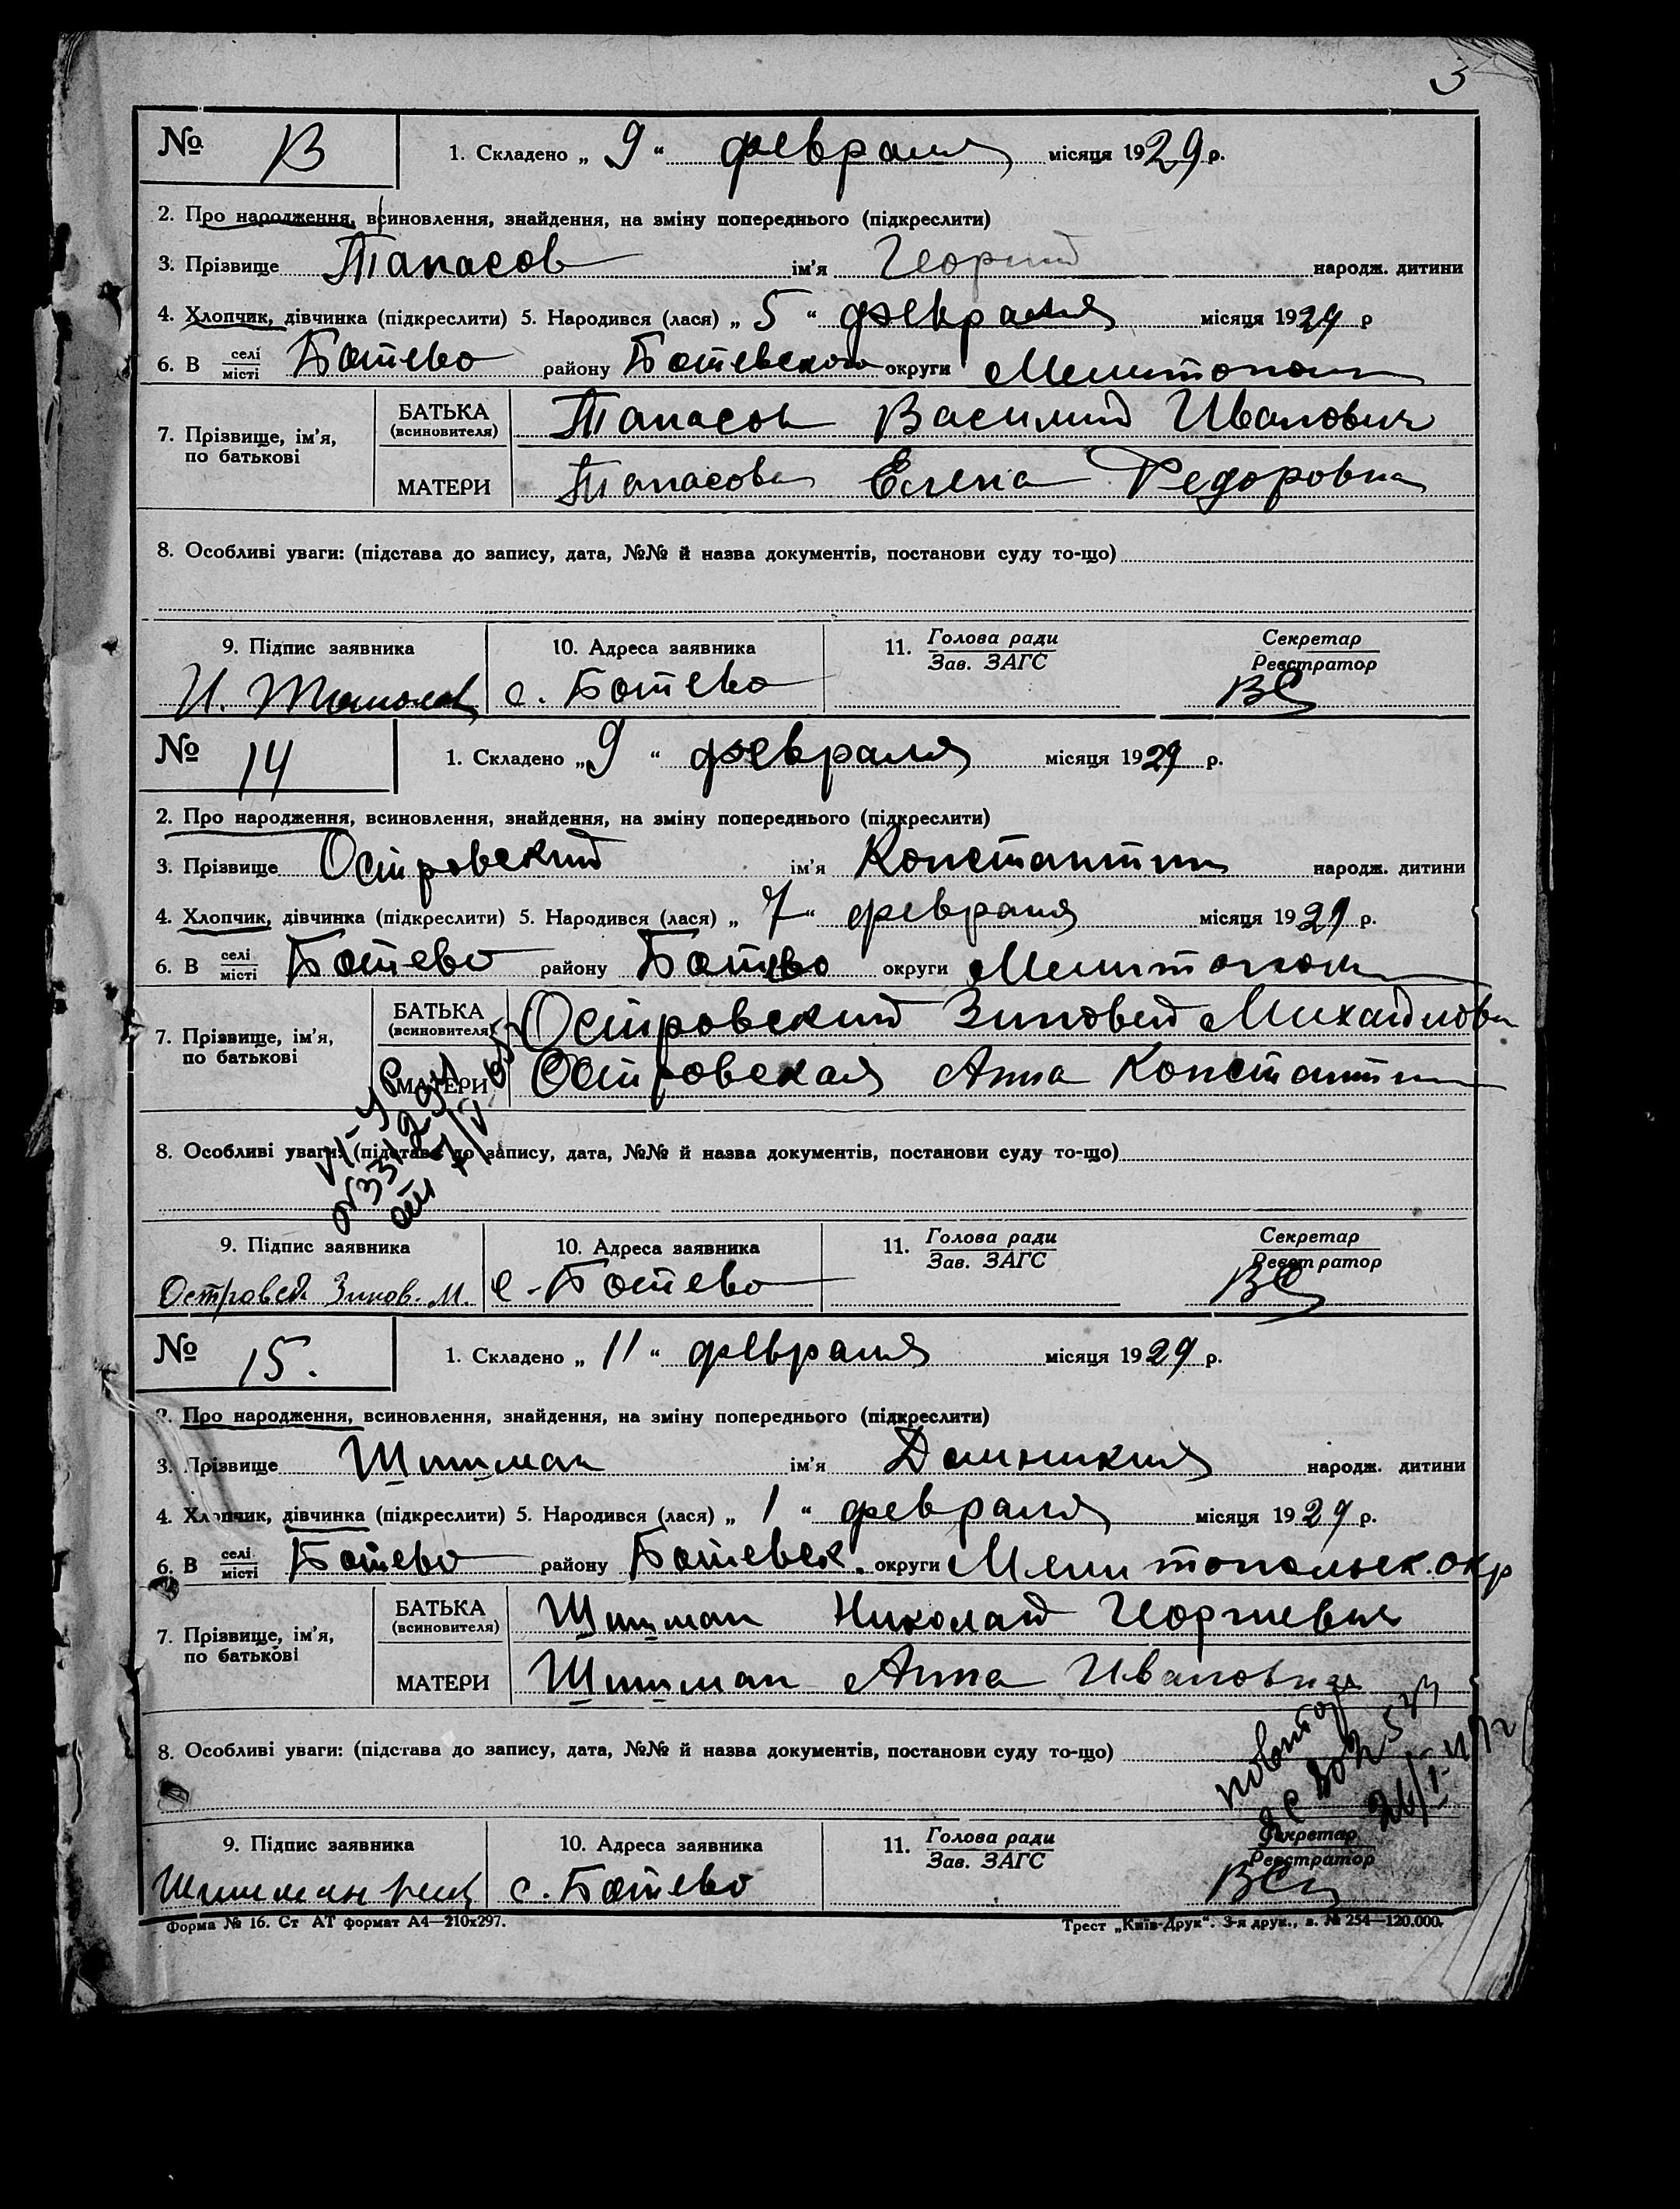 5
№ 13 1. Складено „ 9 “ февраля місяця 1929 р.
2. Про народження, всиновлення, знайдення, на зміну попереднього (підкреслити)
3. Прізвище Танасов ім'я Георгий народж. дитини
4. Хлопчик, дівчинка (підкреслити) 5. Народився (лася) „ 5 “ февраля місяця 1929 р
6. В селі місті Ботево району Ботевского округи Мелитопол
7. Прізвище, ім'я, по батькові
БАТЬКА (всиновителя) Танасов Василий Иванович
МАТЕРИ Танасова Елена Федоровна
8. Особливі уваги: (підстава до запису, дата, №№ й назва документів, постанови суду то-що)
9. Підпис заявника 10. Адреса заявника 11. Голова ради Зав. ЗАГС Секретар Реєстратор
И. с. Ботево
№ 14 1. Складено „ 9 “ февраля місяця 1929 р.
2. Про народження, всиновлення, знайдення, на зміну попереднього (підкреслити)
3. Прізвище Островский ім'я Константин народж. дитини
4. Хлопчик, дівчинка (підкреслити) 5. Народився (лася) „ 7 “ февраля місяця 1929 р.
6. В селі місті Ботево району Ботево округи Мелитопол
7. Прізвище, ім'я, по батькові
БАТЬКА (всиновителя) Островский Зиновий Михайлови
МАТЕРИ Островская Анна Константин
8. Особливі уваги: (підстава до запису, дата, №№ й назва документів, постанови суду то-що)
9. Підпис заявника 10. Адреса заявника 11. Голова ради Зав. ЗАГС Секретар Реєстратор
Зинов. М. с. Ботево
№ 15. 1. Складено „ 11 “ февраля місяця 1929 р.
2. Про народження, всиновлення, знайдення, на зміну попереднього (підкреслити)
3. Прізвище Шишман ім'я Домникия народж. дитини
4. Хлопчик, дівчинка (підкреслити) 5. Народився (лася) „ 1 “ февраля місяця 1929 р.
6. В селі місті Ботево району Ботевск. округи Мелитопольск. окр
7. Прізвище, ім'я, по батькові
БАТЬКА (всиновителя) Шишман Николай Георгиевич
МАТЕРИ Шишман Анна Ивановна
8. Особливі уваги: (підстава до запису, дата, №№ й назва документів, постанови суду то-що)
9. Підпис заявника 10. Адреса заявника 11. Голова ради Зав. ЗАГС Секретар Реєстратор
Шишман с. Ботево
Форма № 16. Ст АТ формат А4—210х297. Трест „Київ-Друк“. 3-я друк., з. № 254—120.000.